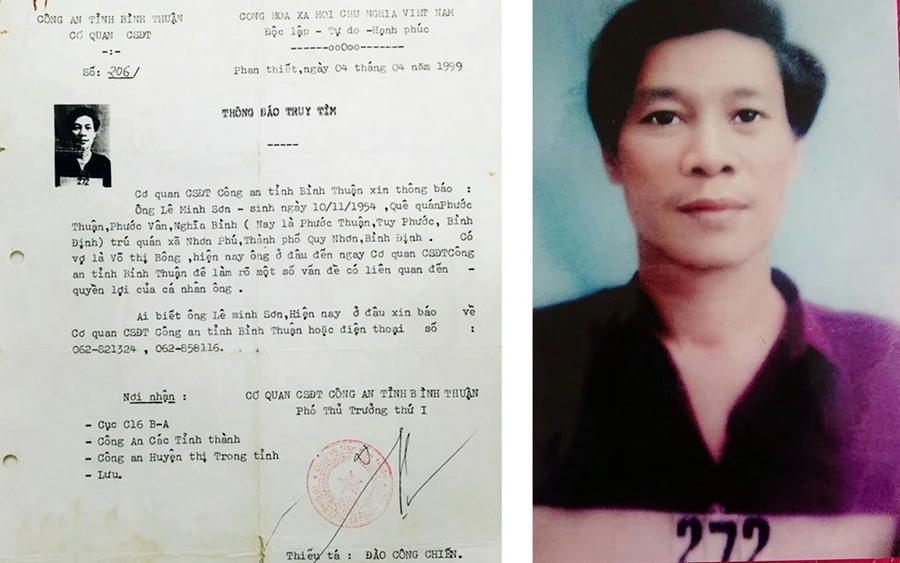 CÔNG AN TỈNH BÌNH THUẬN
CƠ QUAN CSĐT
-:-
Số: 206/
CỘNG HÒA XÃ HỘI CHỦ NGHĨA VIỆT NAM
Độc lập - Tự do -Hạnh phúc
------ooOoo-------
Phan thiết,ngày 04 tháng 04 năm 1999
THÔNG BÁO TRUY TÌM
-----
272
Cơ quan CSĐT Công an tỉnh Bình Thuận xin thông báo :
Ông Lê Minh Sơn - sinh ngày 10/11/1954 ,Quê quánPhước
Thuận,Phước Vân,Nghĩa Bình ( Nay là Phước Thuận,Tuy Phước, Bình
Định) trú quán xã Nhơn Phú,Thành phố Quy Nhơn,Bình Định . Có
vợ là Võ thị Bông ,hiện nay ông ở đâu đến ngay Cơ quan CSĐTCông
an tỉnh Bình Thuận để làm rõ một số vấn đề có liên quan đến -
quyền lợi của cá nhân ông .
Ai biết ông Lê minh Sơn,Hiện nay ở đâu xin báo về
Cơ quan CSĐT Công an tỉnh Bình Thuận hoặc điện thoại số :
062-821324 , 062-858116.
Nơi nhận :
- Cục C16 B-A
- Công An Các Tỉnh thành
- Công an Huyện thị Trong tỉnh
- Lưu.
CƠ QUAN CSĐT CÔNG AN TỈNH BÌNH THUẬN
Phó Thủ Trưởng thứ I
Thiếu tá : ĐÀO CÔNG CHIẾN.
272